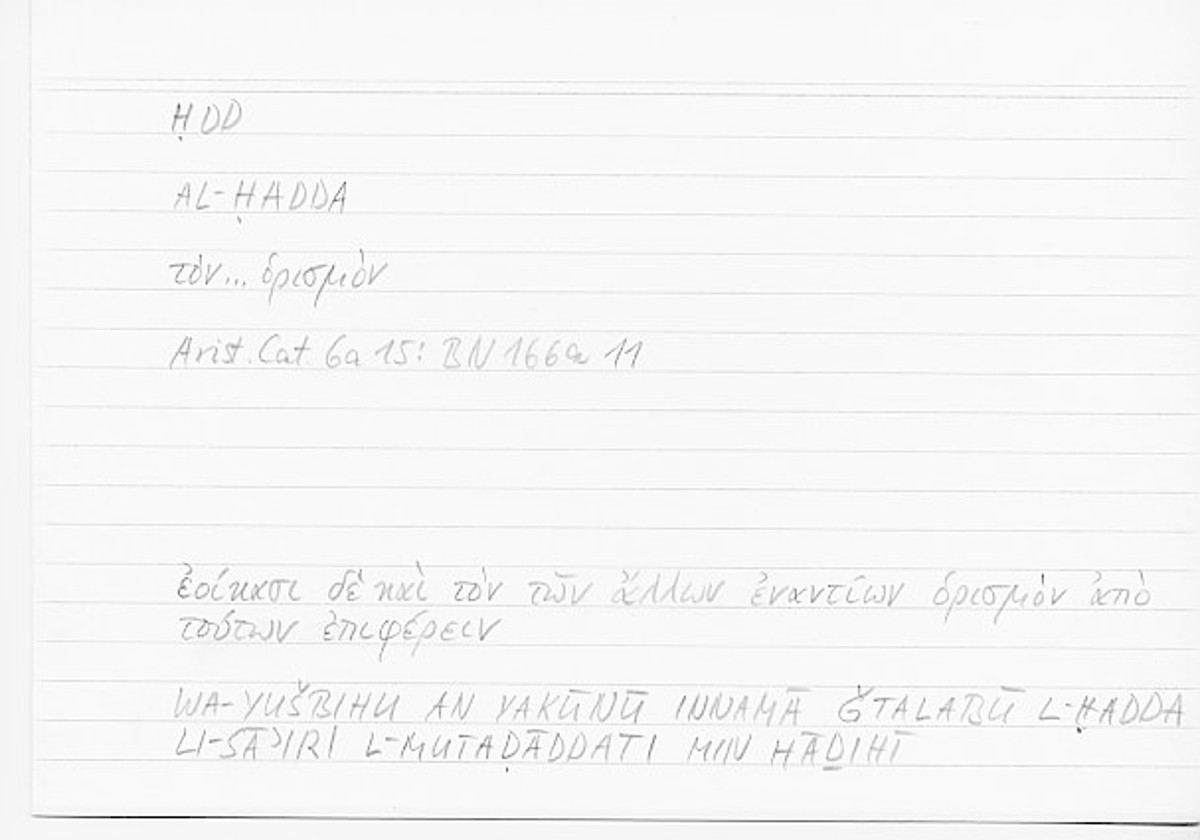 ḤDD
AL-ḤADDA
τὸν... ὁρισμὸν
Arist. Cat. 6a 15; BN 166a 11
ἐοίκασι δὲ καὶ τὸν τῶν ἄλλων ἐναντίων ὁρισμὸν ἀπὸ
τούτων ἐπιφέρειν
WA-YUŠBIHU AN YAKŪNŪ INNAMĀ ǦTALABŪ L-ḤADDA
LI-SĀʾIRI L-MUTAḌĀDDATI MIN HĀḎIHĪ